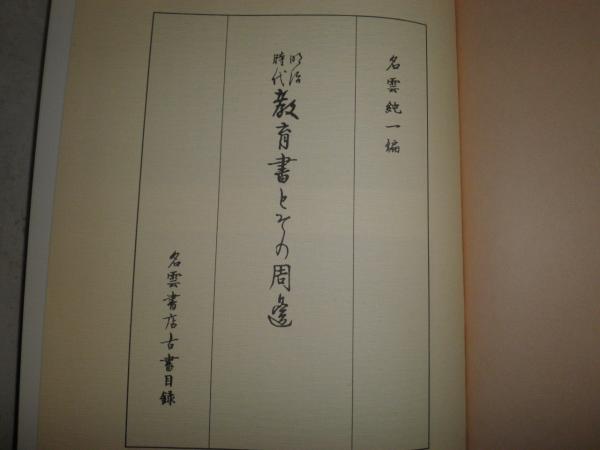 名雲純一編
明治時代教育書とその周邊
名雲書店古書目録